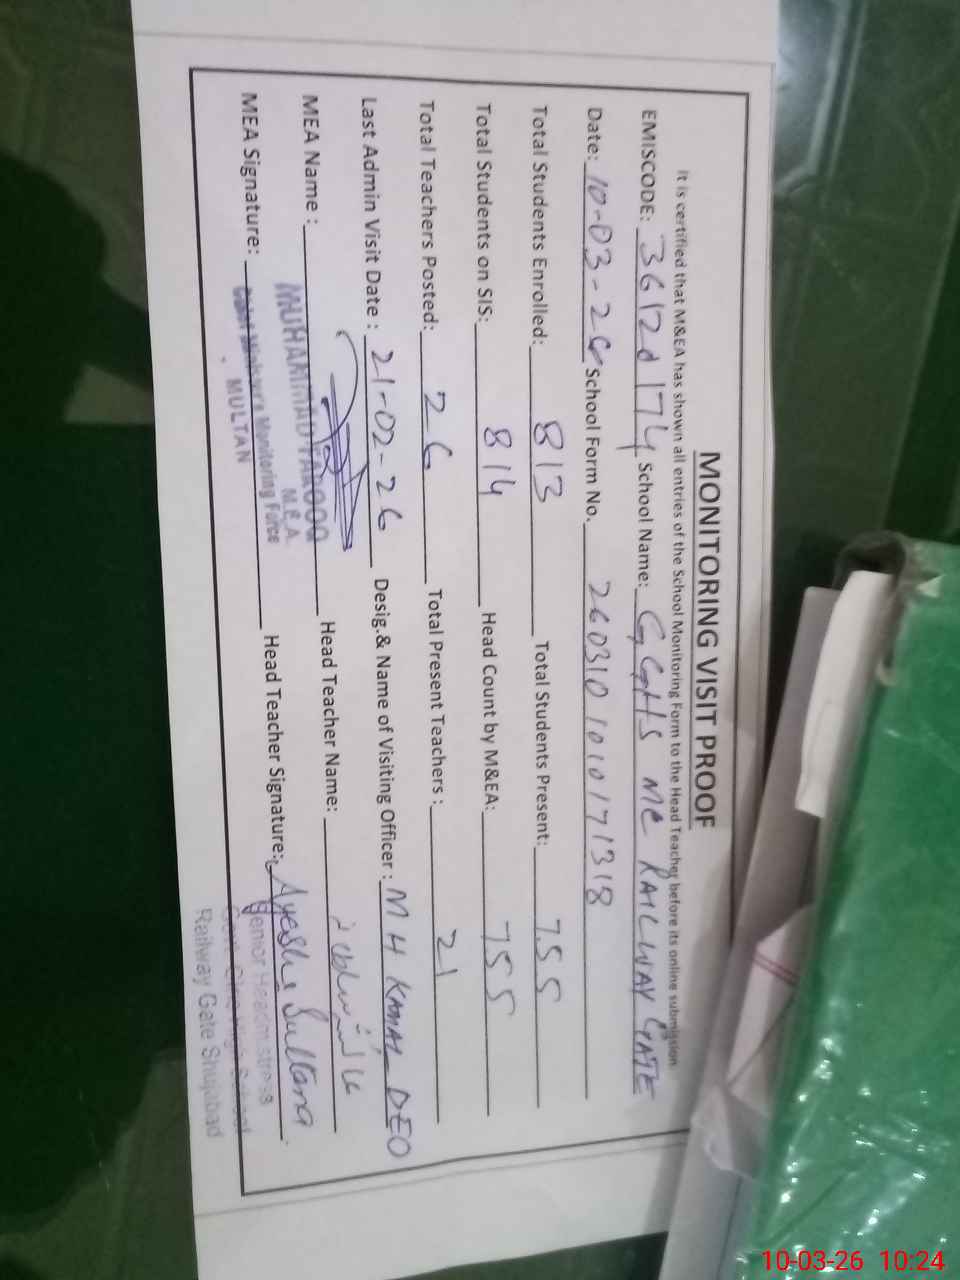 MONITORING VISIT PROOF
It is certified that M&EA has shown all entries of the School Monitoring Form to the Head Teacher before its online submission
EMISCODE: 36120174 School Name: GGHS MC RAILWAY GATE
Date: 10-03-26 School Form No. 2603101010171318
Total Students Enrolled: 813 Total Students Present: 755
Total Students on SIS: 814 Head Count by M&EA: 755
Total Teachers Posted: 26 Total Present Teachers : 21
Last Admin Visit Date : 21-02-26 Desig.& Name of Visiting Officer : M H KAMAL DEO
MEA Name : Head Teacher Name:
MUHAMMAD FAROOQ
M.E.A.
MEA Signature: Head Teacher Signature: Ayesha Sultana
Chief Minister's Monitoring Force
MULTAN
Senior Headmistress
Govt. Girls High School
Railway Gate Shujabad
10-03-26 10:24